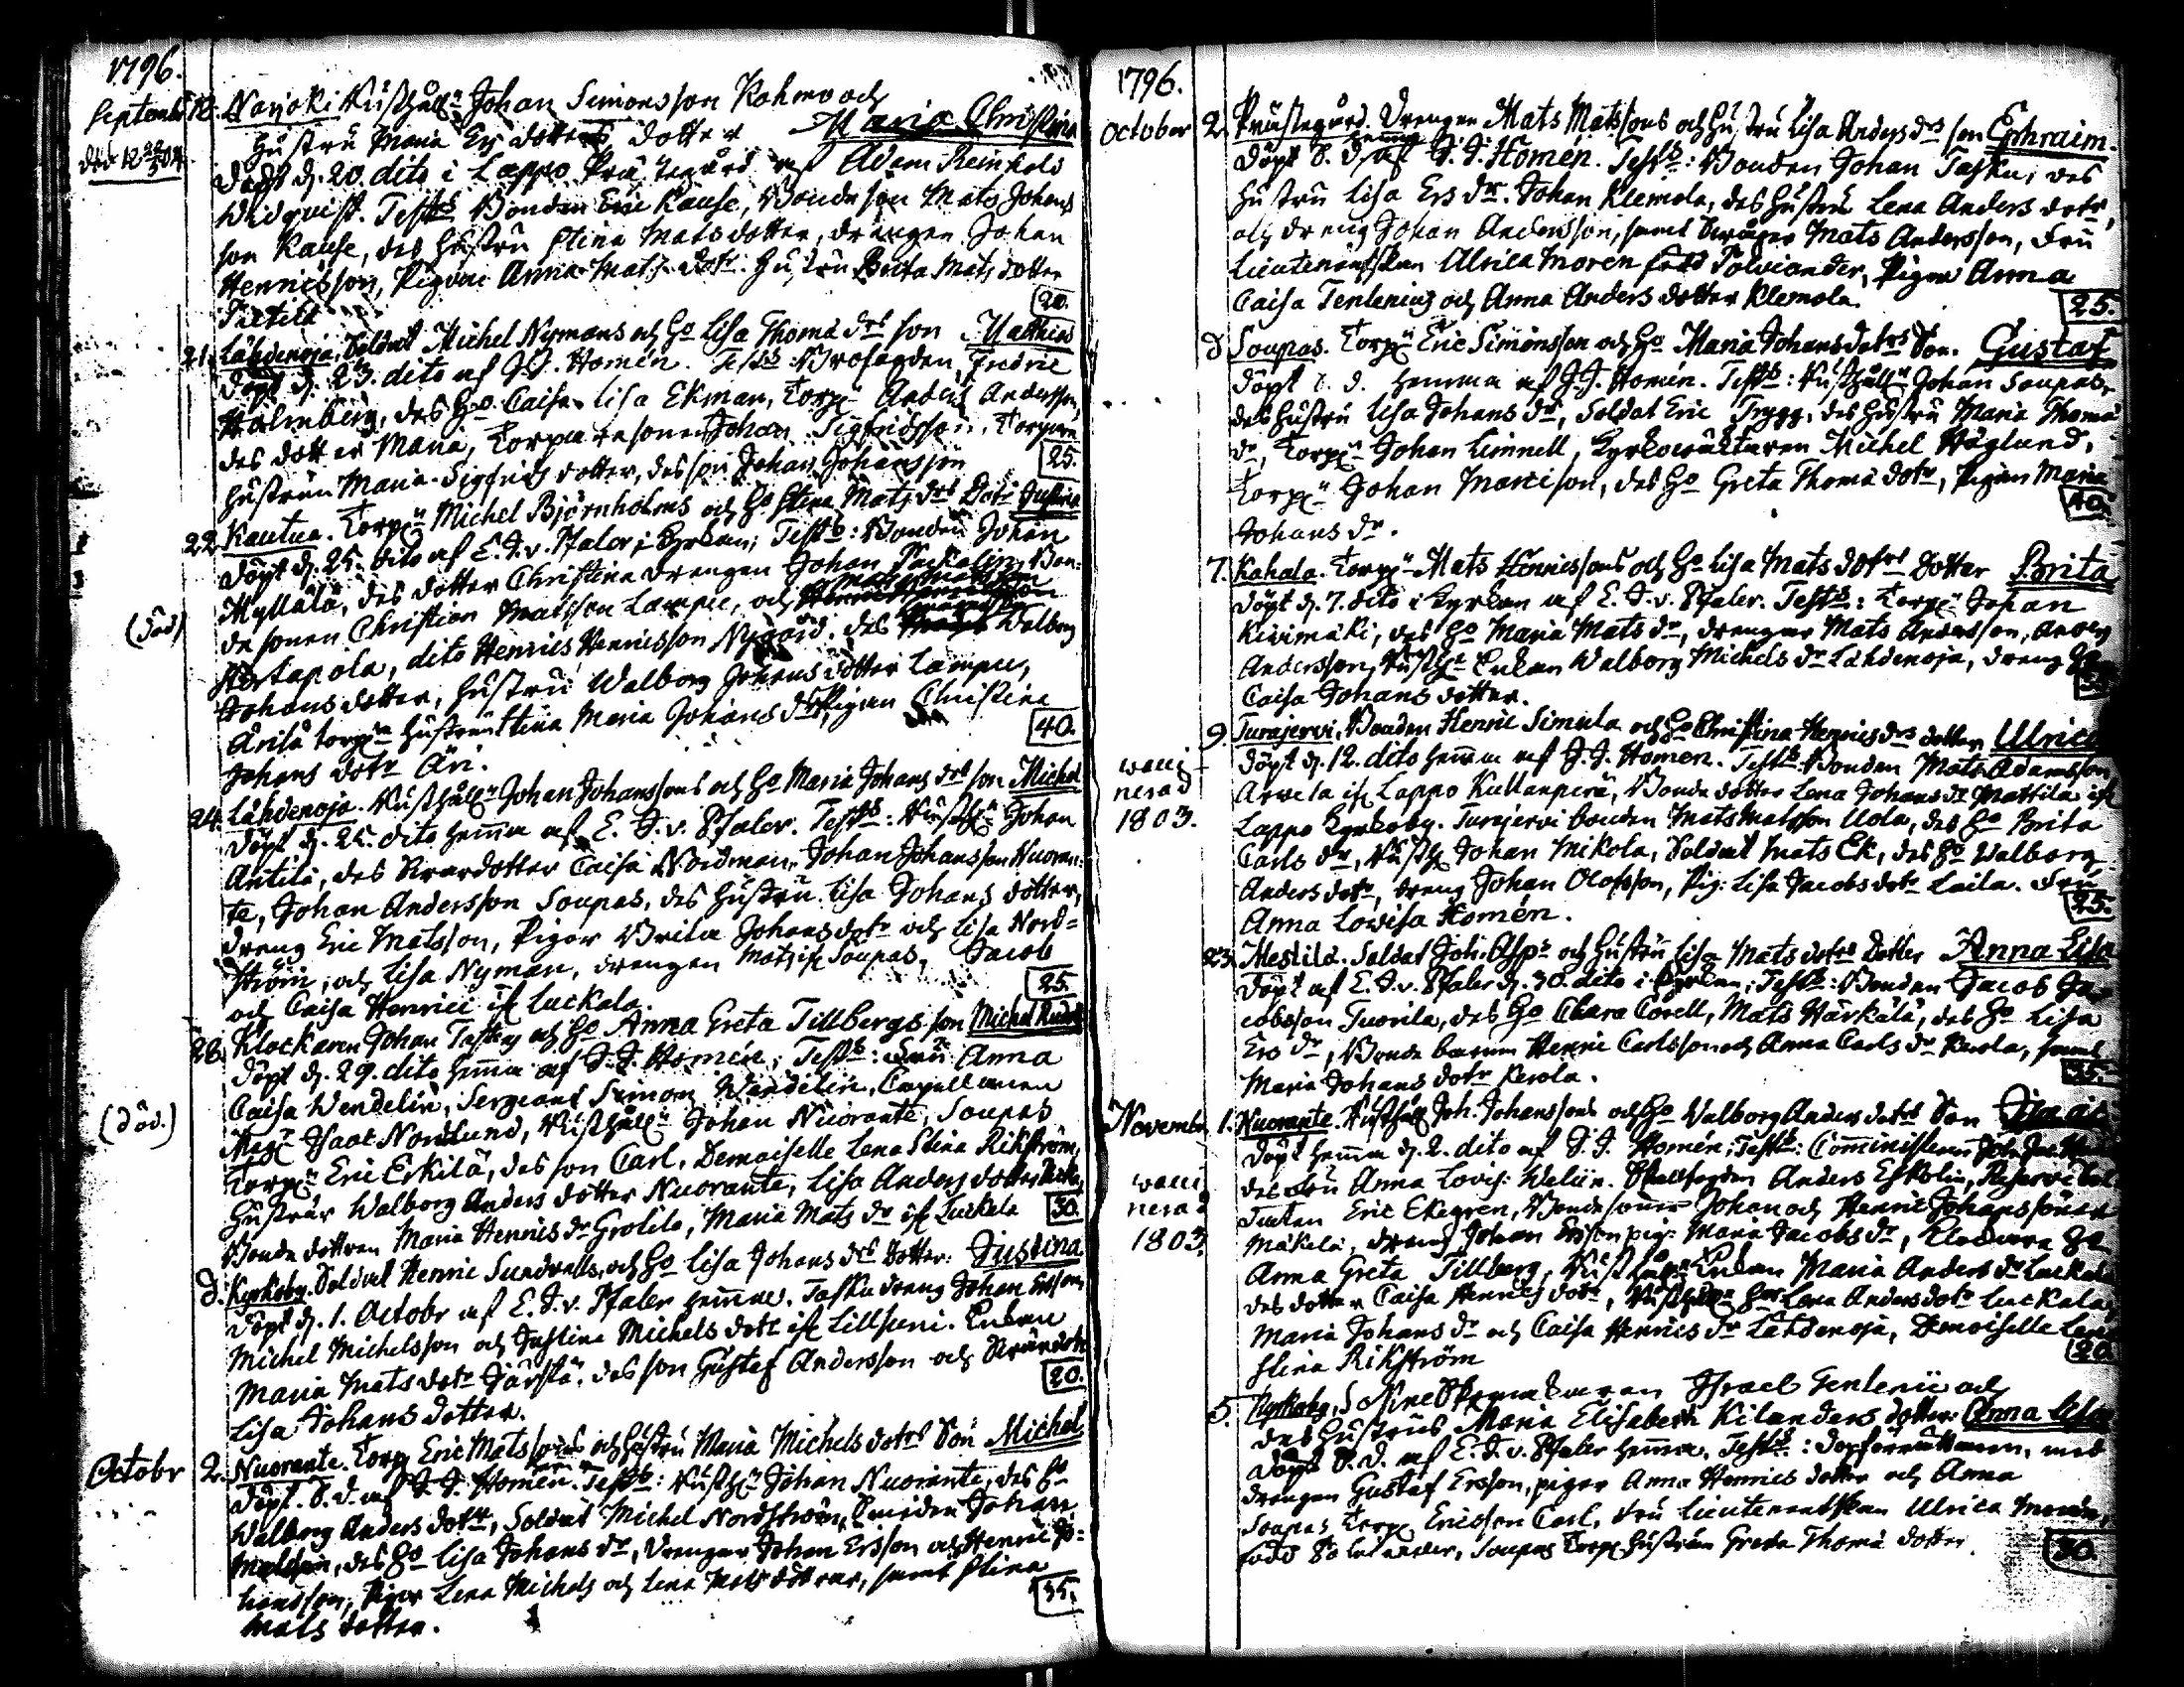 1796.
Septemb. 18. Norjoki Rusthåll:n Johan Simonsson Kohmo och
Hustru Maria Ers dotters dotter Maria Christina
död 12 22/3 04
Döpt d. 20. dito i Lappo Prästegård af Adam Reinhold
Widqvist. Test:s Bonden Eric Kause, Bonde son Mats Johans
son Kause, des Hustru Stina Matsdotter, drengen Johan
Henricsson, Pigorne Anna Mats dotr. Hustru Brita Mats dotter
20.
21. Lähdenoja. Soldat Michel Nymans och Ho Lisa Thomæ drs son Mathias
Döpt d. 23. dito af J.J. Homén. Test:s Brofogden Fredric
Holmberg, des Ho. Caisa Lisa Ekman, Torp:n Anders Andersson,
des dotter Maria, Torpare sonen Johan Sigfridsson, Torpare
Hustrun Maria Sigfrids dotter, des son Johan Johansson 25.
22. Kautua. Torp:n Michel Björnholms och Ho Stina Mats drs Dotr Justina
Döpt d. 25. dito af E. J. v. Pfaler i Kyrkan; Test:s: Bonden Johan
Myllälä, des dotter Christina drengen Johan Packalin, Bon-
(död)
de sonen Christian Matsson Lampu, och Mats Mattsson
dito Henrics Henricsson Nygård. des Walborg
Johansdotter, Hustru Walborg Johans dotter Lampu,
Änilä torp:n Hustrun Stina Maria Johans dr, Pigan Christina
Johans dotr Äri. 40.
24. Lähdenoja. Rusthåll:n Johan Johanssons och Ho Maria Johans drs son Michel
Döpt d. 25. dito hemma af E. J. v. Pfaler. Test:s: Rusth:n Johan
Antila, des Brordotter Caisa Nordman, Johan Johansson Nuoran-
te, Johan Andersson Soupas, des Hustru Lisa Johans dotter,
dreng Eric Matsson, Pigor Brita Johans dotr och Lisa Nord-
ström, och Lisa Nyman, drengen Mats ifr Soupas, Jacob
och Caisa Henrici ifr Luckala. 25.
26. Klockaren Johan Testens och Ho Anna Greta Tillbergs son Michel Rudolf
Döpt d. 29. dito hemma af J. J. Homén; Test:s: Fru Anna
Caisa Wendelin, Sergeant Simon Wendelin, Capellanen
Mag:r Isaac Nordlund, Rusthåll:n Johan Nuorante, Soupas
(död.)
Torp:n Eric Erkilä, des son Carl, Demoiselle Lena Stina Rikström,
Hustrur Walborg Anders dotter Nuorante, Lisa Anders dotter
Bonde dottren Maria Henrics dr Grolila, Maria Mats dr ifr Luckala 30.
d. Kyrkoby. Soldat Henric Sundvalls, och Ho Lisa Johans drs Dotter. Justina
Döpt d. 1. Octobr af E. J. v. Pfaler hemma. Tasku dreng Johan Ersson,
Michel Michelsson och Justina Michels dotr ifr Lillsuni. Enkan
Maria Mats dotr Järstä. des son Gustaf Andersson och
Lisa Johans dotter. 20.
Octobr 2. Nuorante. Torp Eric Matssons och Hustru Maria Michels dotrs Son Michel
Döpt S. d. af J. J. Homén. Test:s: Rusth:n Johan Nuorante, des Ho
Walborg Anders dotr, Soldat Michel Nordström, Smeden Johan
des Ho Lisa Johans dr, Drengar Johan Ersson och Henric Jo-
hansson, Pigor Lena Michels och Lena Mats döttrar, samt Stina
Mats dotter. 35.
1796.
October 2. Prästegård. Drengen Mats Matssons och Hustru Lisa Anders drs son Ephraim.
Döpt S. d. hemma af J. J. Homén. Test:s: Bonden Johan Tasku, des
Hustru Lisa Ers dr. Johan Klemola, des Hustru Lena Anders dotr,
och dreng Johan Andersson, samt Mats Andersson, Fru
Lieutenantskan Ulrica Moren född Polviander, Pigan Anna
Caisa Tenlenius och Anna Anders dotter Klemola. 25.
d. Soupas. Torp:n Eric Simonsson och Ho Maria Johans dotrs Son. Gustaf
Döpt S. d. hemma af J. J. Homén. Test:s: Rusthåll:n Johan Soupas,
des Hustru Lisa Johans dr, Soldat Eric Trygg, des Hustru Maria Thomæ
dr, Torp:n Johan Linnell, Kyrkowäktaren Michel Höglund,
Torp:n Johan Marcison, des Ho Greta Thomæ dotr, Pigan Maria
Johans dr. 40.
7. Kahala. Torp:n Mats Henricssons och Ho Lisa Mats dotrs Dotter Brita
Döpt d. 7. dito i Kyrkan af E. J. v. Pfaler. Test:s: Torp:n Johan
Kivimäki, des Ho Maria Mats dr, drengar Mats Andersson, Anders
Andersson, Rusth:s Enkan Walborg Michels dr Lähdenoja, dreng
Caisa Johans dotter.
9. Turajervi. Bonden Henric Simula och Ho Christina Henrics drs dotter Ulrica
Döpt d. 12. dito hemma af J. J. Homén. Test:s Bonden Mats Adamsson
Arwela ifr Lappo Kullanperä, Bonde dotter Lena Johans dr Mattila ifr
Lappo Kyrkoby. Turajervi bonden Mats Matsson Uola, des Ho Brita
Carls dr, Rusth: Johan Mikola, Soldat Mats Ek, des Ho Walborg
Anders dotr, dreng Johan Olofsson, Pig: Lisa Jacobs dotr Laila. Fru
Anna Lovisa Homén. 25.
wacci-
nerad
1803.
23. Mestilä. Soldat Joh. Asps och Hustru Lisa Mats dotrs Dotter Anna Lisa
Döpt af E. J. v. Pfaler d. 30. dito i Kyrkan; Test:s: Bonden Jacob Ja-
cobsson Tuorila, des Ho Clara Corell, Mats Härkälä, des Ho Lisa
Ers dr, Bonde barnen Henric Carlsson och Anna Carls dr Perola, samt
Maria Johans dotr Perola. 35.
Novembr 1. Nuorante. Rusthåll Joh. Johanssons och Ho Walborg Anders dotrs Son Isaac
Döpt hemma d. 2. dito af J. J. Homén; Test:s: Comministern Joh. Jac. Homén
des Fru Anna Lovis: Welin. Anders Eskolin,
Eric Ekegren, Bondesöner Johan och Henric Johanssöner
Mäkelä, dreng Johan Ersson pig: Maria Jacobs dr, Klockare Ho
Anna Greta Tillberg, Rusthåll:s Enkan Maria Anders dr Luckala
des dotter Caisa Henrics dotr, Rusthåll:s Ho Lena Anders dotr Luckala,
Maria Johans dr och Caisa Henrics dr Lähdenoja, Demoiselle Lena
Stina Rikström 20.
wacci-
nerad
1803.
5. Kyrkoby, Israel Tenlenii och
des Hustrus Maria Elisabeth Kilanders dotter: Anna Lisa
Döpt S. d. af E. J. v. Pfaler hemma. Test:s: Dopförrättaren, med
drengen Gustaf Ersson, pigor Anna Henrics dotter och Anna
Soupas Torp Ericsson Carl, Fru Lieutenantskan Ulrica Morén,
född Polviander, Soupas Torp: Hustrun Greta Thomæ dotter. 30.